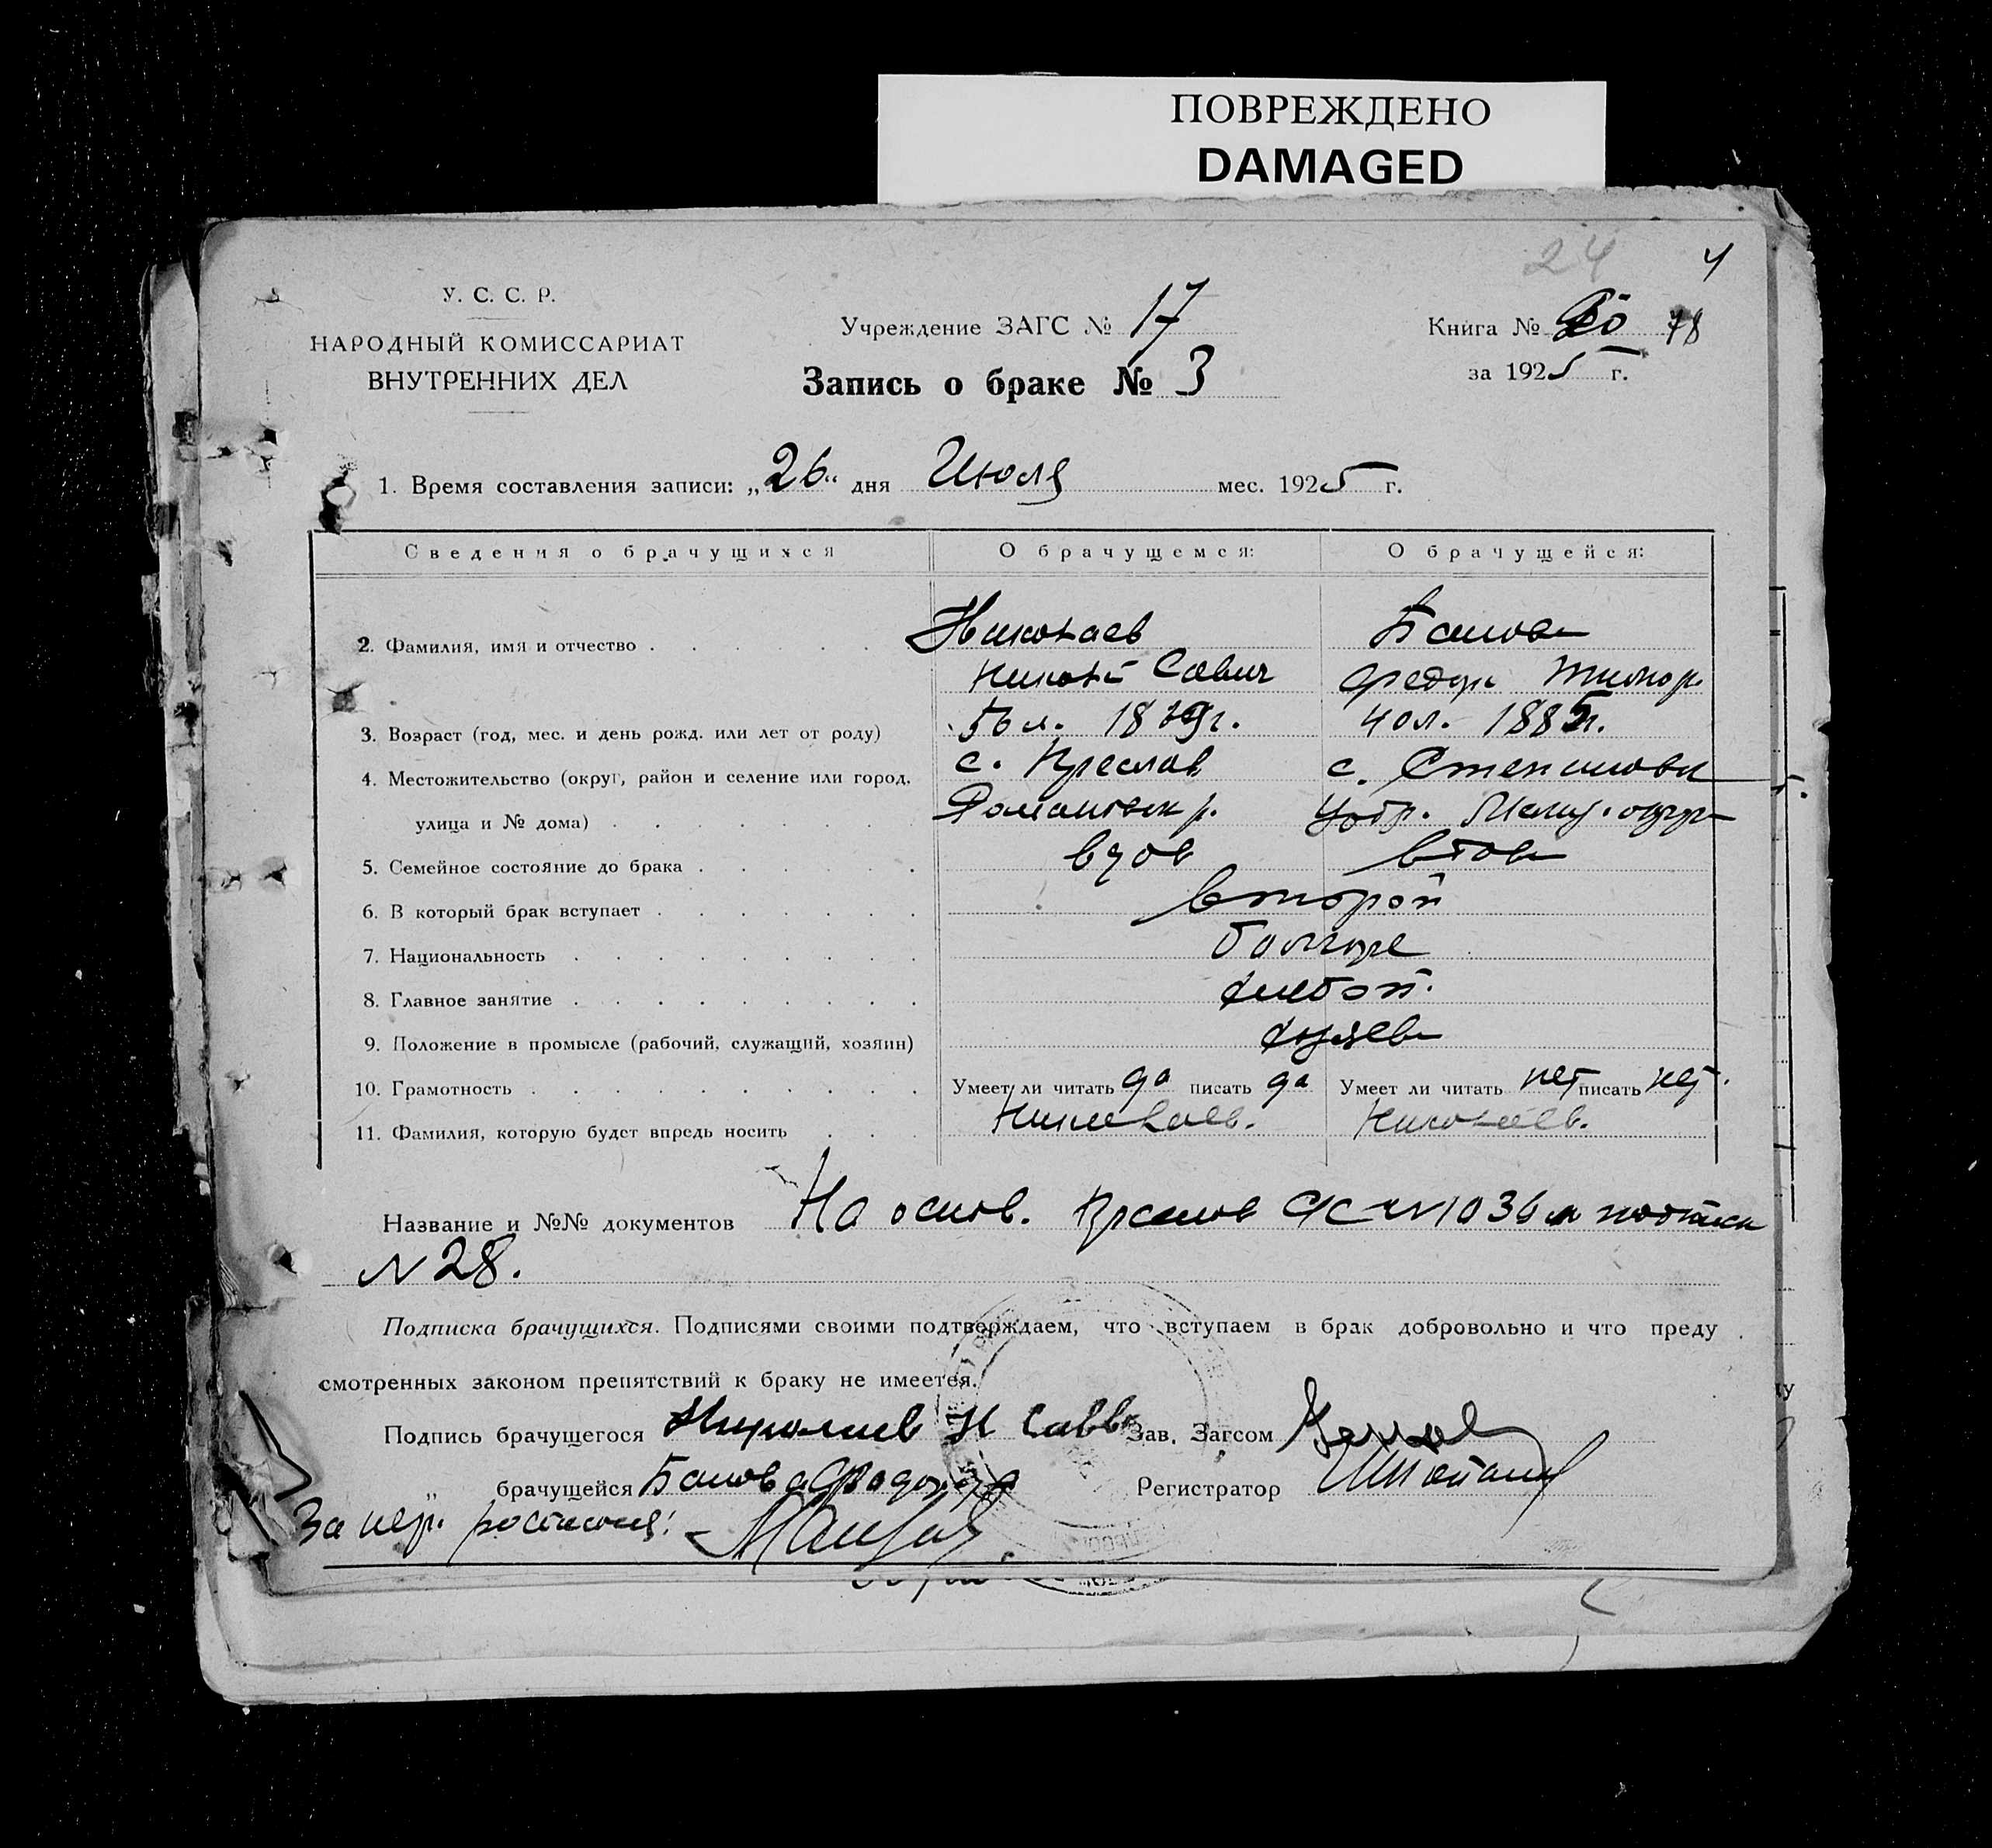 ПОВРЕЖДЕНО
DAMAGED
24 4
У. С. С. Р.
НАРОДНЫЙ КОМИССАРИАТ
ВНУТРЕННИХ ДЕЛ
Учреждение ЗАГС № 17
Запись о браке № 3
Книга № 78
за 1925 г.
1. Время составления записи: „26" дня Июля мес. 1925 г.
Сведения о брачущихся О брачущемся: О брачущейся:
2. Фамилия, имя и отчество Николаев Банова
Никол. Савич Федора Тимоф.
3. Возраст (год, мес. и день рожд. или лет от роду) 56 л. г. 40 л. 1885 г.
4. Местожительство (округ, район и селение или город, с. Преслав с. Степановка
улица и № дома) Романовск р.
5. Семейное состояние до брака вдов вдова
6. В который брак вступает второй
7. Национальность болгаре
8. Главное занятие хлебоп.
9. Положение в промысле (рабочий, служащий, хозяин) хозяева
10. Грамотность Умеет ли читать да писать да Умеет ли читать нет писать нет.
11. Фамилия, которую будет впредь носить Николаев. Николаев.
Название и №№ документов На основ. Преслов с/с №1036 и подписки
№ 28.
Подписка брачущихся. Подписями своими подтверждаем, что вступаем в брак добровольно и что преду
смотренных законом препятствий к браку не имеется.
Подпись брачущегося Николаев Н Савв Зав. Загсом
„ брачущейся Банова Федора Регистратор
За негр. расписался: